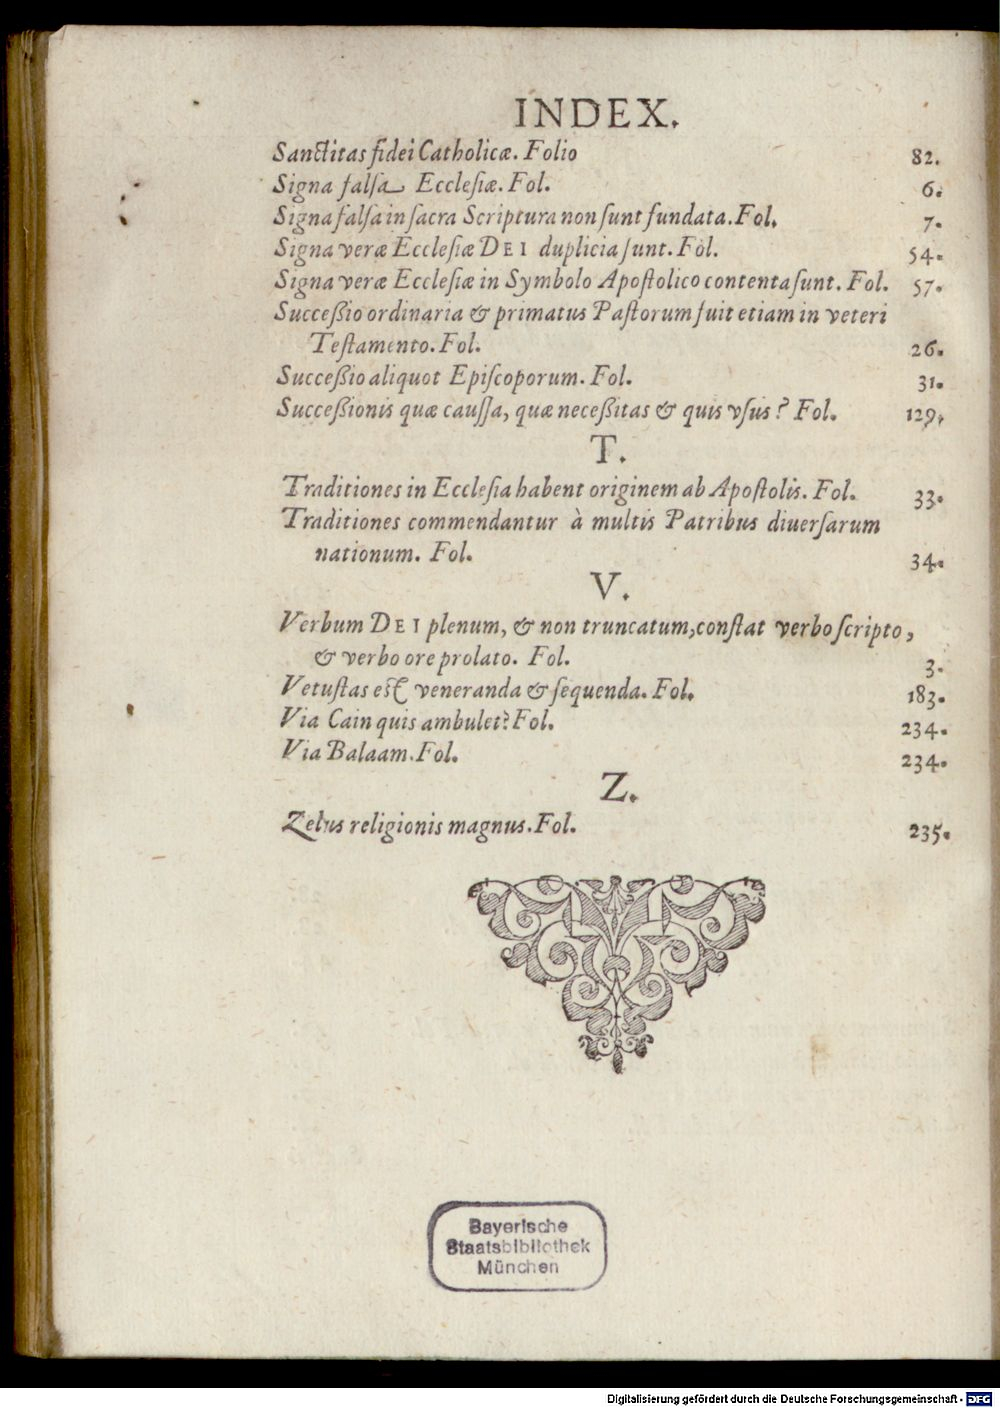 INDEX.
Sanctitas fidei Catholicæ. Folio 82.
Signa falſa Eccleſiæ. Fol. 6.
Signa falſa in ſacra Scriptura non ſunt fundata. Fol. 7.
Signa veræ Eccleſiæ DEI duplicia ſunt. Fol. 54.
Signa veræ Eccleſiæ in Symbolo Apoſtolico contenta ſunt. Fol. 57.
Succeßio ordinaria & primatus Paſtorum fuit etiam in veteri
Teſtamento. Fol. 26.
Succeßio aliquot Epiſcoporum. Fol. 31.
Succeßionis quæ cauſſa, quæ neceßitas & quis vſus? Fol. 129.
T.
Traditiones in Eccleſia habent originem ab Apoſtolis. Fol. 33.
Traditiones commendantur à multis Patribus diuerſarum
nationum. Fol. 34.
V.
Verbum DEI plenum, & non truncatum, conſtat verbo ſcripto,
& verbo ore prolato. Fol. 3.
Vetuſtas eſt veneranda & ſequenda. Fol. 183.
Via Cain quis ambulet? Fol. 234.
Via Balaam. Fol. 234.
Z.
Zelus religionis magnus. Fol. 235.
Bayerische
Staatsbibliothek
München
Digitalisierung gefördert durch die Deutsche Forschungsgemeinschaft - DFG